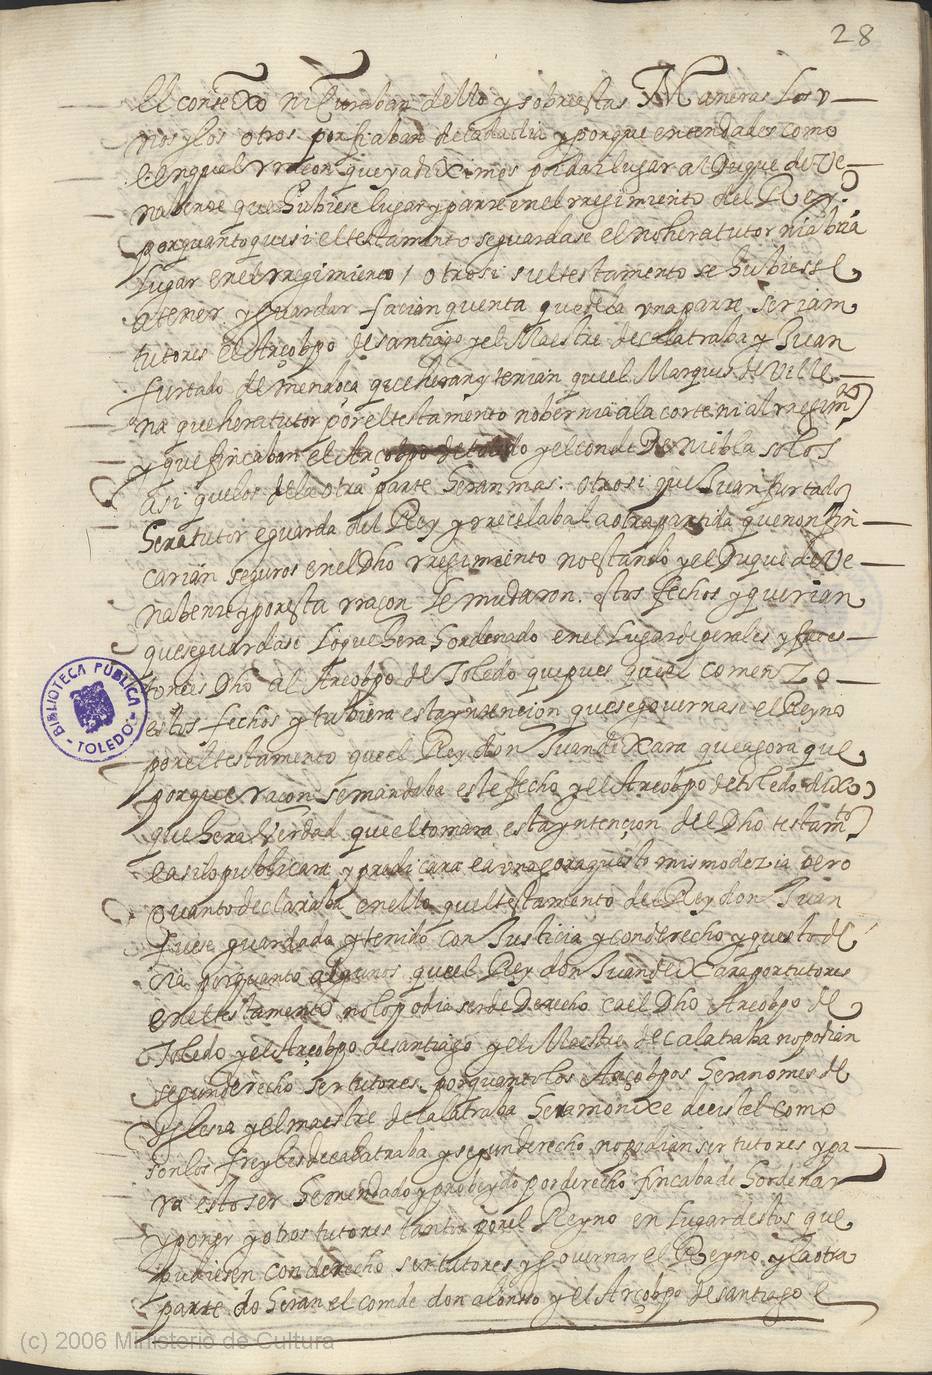 28
El consexo ni curaban dello y sobre estas Maneras Los v
nos y los otros porfiaban de cada dia y porque entendades como
e en qual rracon que ya diximos podia lugar al Duque de Ve
nabente que hubiese lugar y parte en el rregimiento del Rey
por quanto que si el testamento se guardase el no hera tutor ni abria
Lugar en el rregimiento / otrosi si el testamento se hubiesse
a tener y guardar facian quenta que de la vna parte serian
tutores el Arcobpo de santiago y el Maestre de calatraba y Juan
furtado de mendoca que heran y tenian que el Marques de Ville
na que hera tutor por el testamento no bernia a la corte ni al rregimto
y que fincaban el Arcobpo de toledo y el conde De niebla solos
asi que los de la otra parte heran mas. otrosi que Juan furtado
hera tutor e guarda del Rey y rrecelaba la otra partida que non fin
carian seguros en el Dho rregimiento no estando y el Duque de Ve
nabente y por esta rracon se mudaron. estos fechos y querian
que se guardase Lo que hera hordenado en el Lugar de perales y
entonces Dho al Arcobpo de Toledo que pues que el comenzo
estos fechos y tubiera esta yntencion que se governase el Reyno
por el testamento que el Rey don Juan dexara que agora que
porque racon se mandaba este fecho y el Arcobpo de toledo dixo
que hera Verdad que el tomara esta yntencion del Dho testamto
e asi lo publicara y predicara e avn agora questo mismo dezia pero
quanto declaraba en ello quel testamento del Rey don Juan
fuese guardado y tenido con Justicia y con derecho y questo de
cia por quanto algunos quel Rey don Juan dexara por tutores
en el testamento no lo podia ser de Derecho ca el Dho Arcobpo de
Toledo y el Arcobpo de santiago y el Maestre de calatraba no podian
segun derecho ser tutores porquanto los Arcobpos heran omes de
yglesia y el maestre de calatraba hera monxe de cistel como
son los freyles de calatraba y segun derecho no podian ser tutores y pa
ra esto ser hemendado y probeydo por derecho fincaba de hordenar
y poner y otros tutores tantos por el Reyno en Lugar destos que
pudiesen con derecho ser tutores y governar el Reyno y la otra
parte do heran el comde don alonsso y el Arcobpo de santiago e
BIBLIOTECA PÚBLICA - TOLEDO -
(c) 2006 Ministerio de Cultura